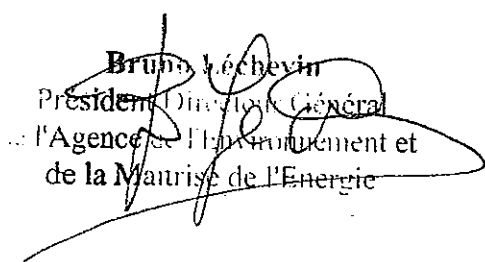 Bruno Léchevin
Président Directeur Général
de l'Agence de l'Environnement et
de la Maîtrise de l'Energie